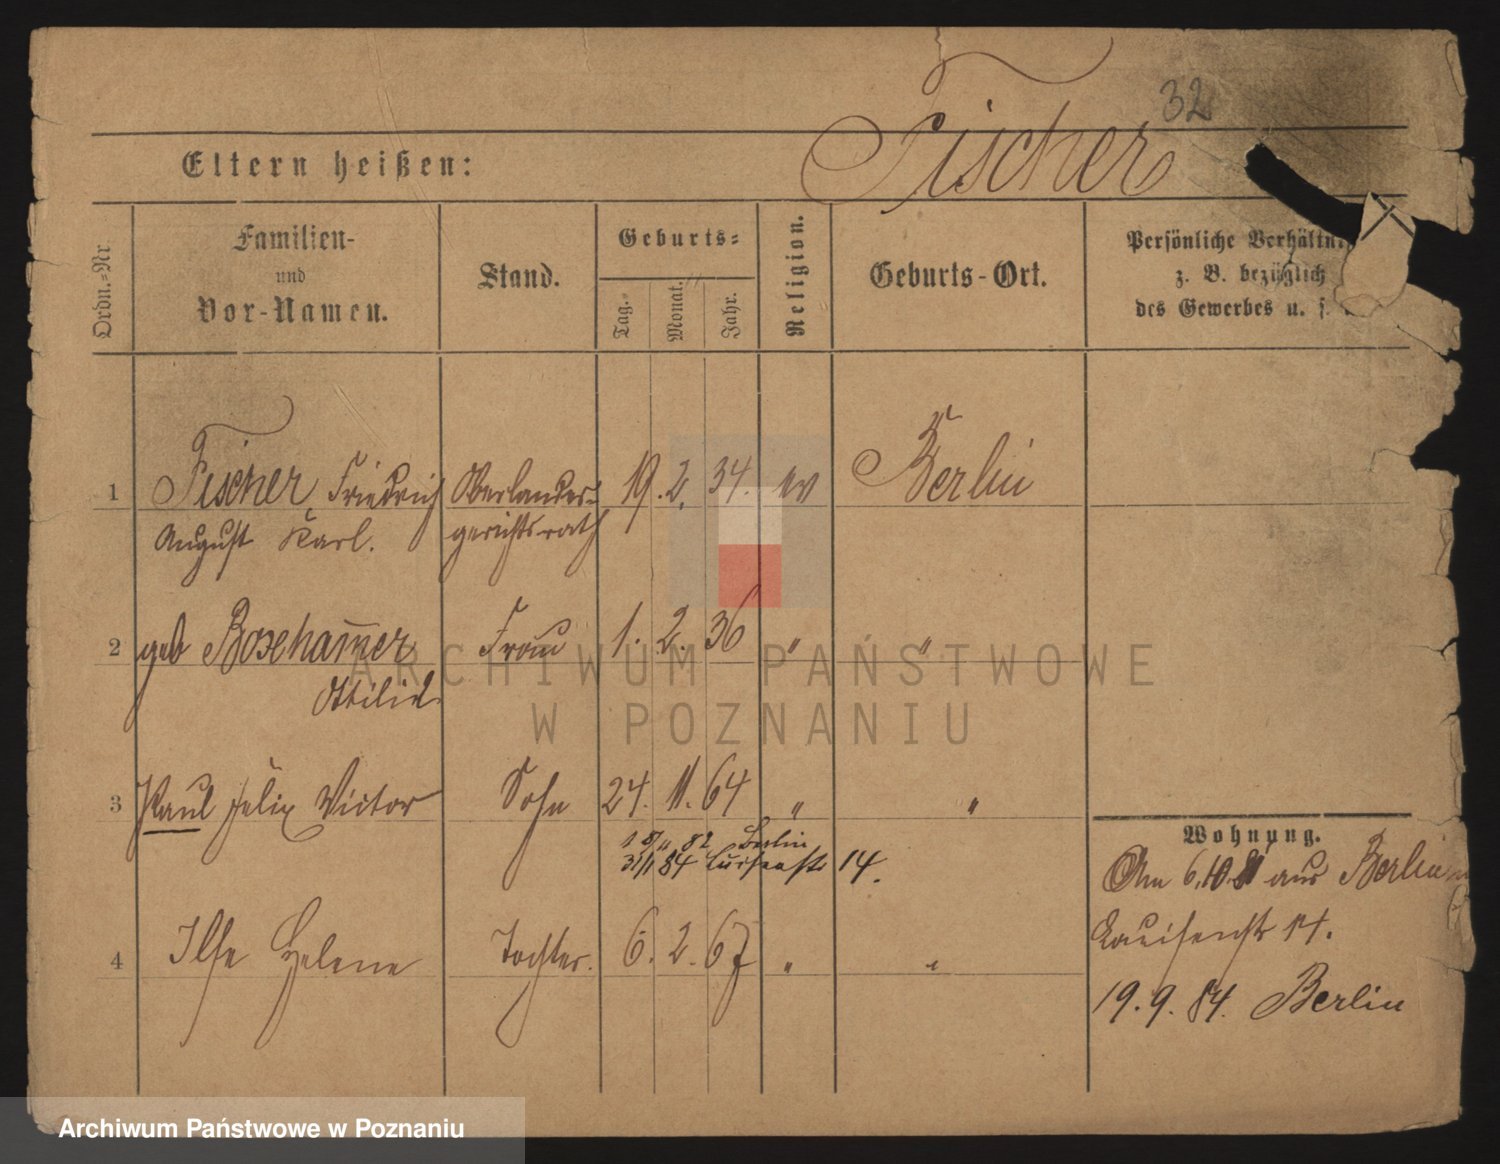 32
Fischer
Eltern heißen:
Ordn.-Nr
Familien-
und
Vor-Namen.
Stand.
Geburts-
Tag.
Monat.
Jahr.
Religion.
Geburts-Ort.
Persönliche Verhältni
z. B. bezüglich
des Gewerbes u. s.
1 Fischer, Friedrich Oberlandes- 19. 2. 34. ev Berlin
August Karl. gerichtsrath
2 geb Bosehamer Frau 1. 2. 36 " "
Ottilie
3 Paul Felix Victor Sohn 24. 11. 64 " "
82 Berlin
31/1 84 14.
4 Ilse Helene Tochter. 6. 2. 67 " "
Wohnung.
Am 6.10.81 aus Berlin
Louisenstr 14.
19. 9. 84. Berlin
ARCHIWUM PAŃSTWOWE
W POZNANIU
Archiwum Państwowe w Poznaniu